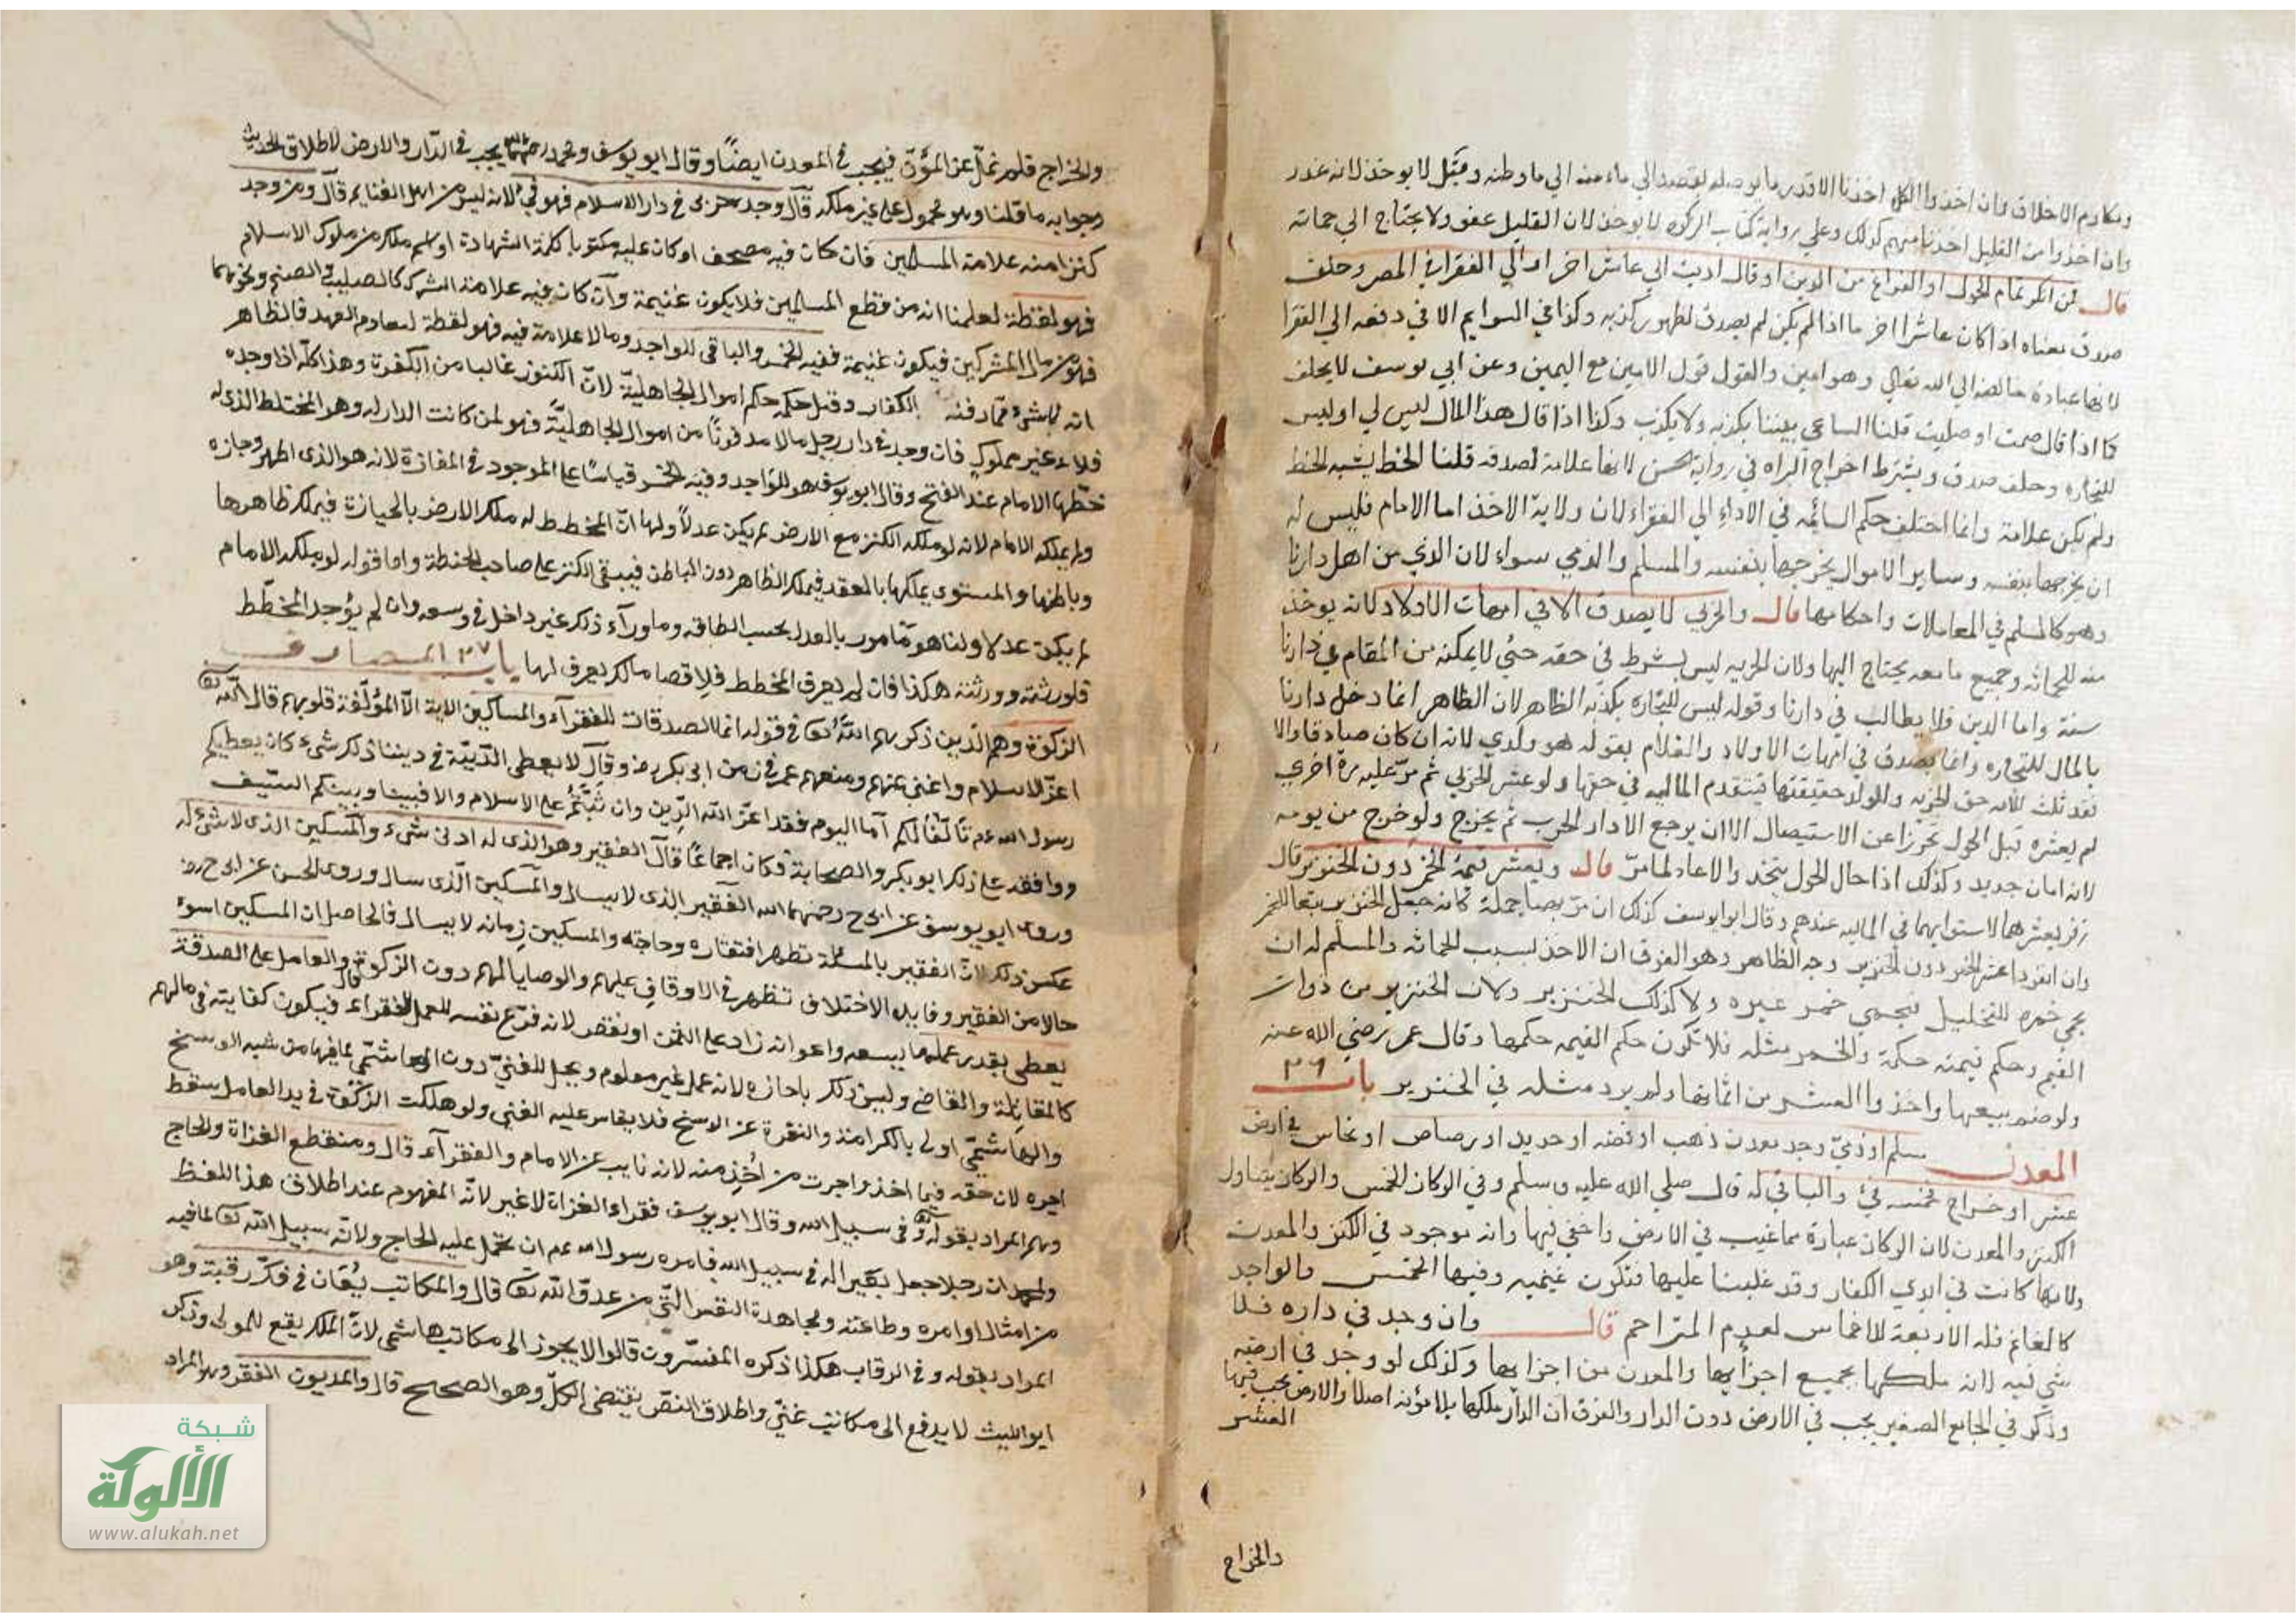 ومكارم الاخلاق وان اخذوا الكل اخذنا الا قدر ما يوصله لقصده الي ماء منه الي ما وطنه وقيل لا يوخذ لانه غدر
وان اخذوا من القليل اخذنا منهم كذلك وعلي رواية كتاب الزكوه لا يوخذ لان القليل عفو ولا يحتاج الي حمايته
قال فمن انكر تمام الحول او الفراغ من الدين او قال اديت الي عاشر اخر او الي الفقرا في المصر وحلف
صدق معناه اذا كان عاشرا اخر ما اذا لم يكن لم يصدق لظهور كذبه وكذا في السوايم الا في دفعه الي الفقرا
لانها عبادة خالصه لله تعالي وهو امين والقول قول الامين مع اليمين وعن ابي يوسف لا يحلف
كما اذا قال صمت او صليت قلنا الساعي بيننا يكذبه ولا يكذب وكذا اذا قال هذا المال ليس لي او ليس
للتجاره وحلف صدق ويشترط اخراج البراه في رواية الحسن لانها علامة لصدقه قلنا الخط يشبه الخط
ولم يكن علامة وانما اختلف حكم السائمه في الاداء الي الفقراء لان ولاية الاخذ اما الامام فليس له
ان يخرجها بنفسه وساير الاموال يخرجها بنفسه والمسلم والذمي سواء لان الذمي من اهل دارنا
وهو كالمسلم في المعاملات واحكامها قال والحربي لا يصدق الا في امهات الاولاد لانه يوخذ
منه للحمايه وجميع ما معه يحتاج اليها ولان الحريه ليس بشرط في حقه حتي لا يمكنه من المقام في دارنا
سنة واما الدين فلا يطالب في دارنا وقوله ليس للتجاره يكذبه الظاهر لان الظاهر انما دخل دارنا
بالمال للتجاره وانما يصدق في امهات الاولاد والغلام بقوله هو ولدي لانه ان كان صادقا والا
فقد ثبت للام حق الحريه وللولد حقيقتها فتنعدم الماليه في حقها ولو عشر الحربي ثم مر عليه مرة اخري
لم يعشره قبل الحول تحرزا عن الاستيصال الا ان يرجع الا دار الحرب ثم يخرج ولو خرج من يومه
لانه امان جديد وكذلك اذا حال الحول يتجدد والا عاد لما مر قال ويعشر قيمة الخمر دون الخنزير قال
زفر يعشرهما لاستوايهما في الماليه عندهم وقال ابو يوسف كذلك ان مر بهما جملة كانه جعل الخنزير تبعا للخمر
وان انفردا عشر الخمر دون الخنزير وجه الظاهر وهو الفرق ان الاخذ بسبب الحمايه والمسلم له ان
يحمي خمره للتخليل فيحمي خمر غيره ولا كذلك الخنزير ولان الخنزير من ذوات
القيم وحكم قيمته حكمه والخمر مثله فلا تكون حكم القيمه حكمها وقال عمر رضي الله عنه
ولوهم ببيعها واخذوا العشر من اثمانها ولم يرد مثله في الخنزير باب ٣٦
المعدن مسلم او ذمي وجد معدن ذهب او فضه او حديد او رصاص او نحاس في ارض
عشر او خراج فخمسه فئ والباقي له قال صلي الله عليه وسلم وفي الركاز الخمس والركاز يتناول
الكنز والمعدن لان الركاز عبارة عما غيب في الارض واخفي فيها وانه موجود في الكنز والمعدن
ولانها كانت في ايدي الكفار وقد غلبنا عليها فتكون غنيمه وفيها الخمس والواجد
كالغانم فله الاربعة الاخماس لعدم المزاحم قال وان وجد في داره فلا
شي فيه لانه ملكها بجميع اجزائها والمعدن من اجزائها وكذلك لو وجد في ارضه
وذكر في الجامع الصغير يجب في الارض دون الدار والفرق ان الدار ملكها بلا مؤنه اصلا والارض يجب فيها
العشر
والخراج
والخراج فلم تخل عن المؤن فيجب في المعدن ايضًا وقال ابو يوسف ومحمد رحمهما الله يجب في الدّار والارض لاطلاق الحديث
وجوابه ما قلنا وهو محمول على غير ملكه قال وجد حربى فى دار الاسلام فهو فئ لانه ليس من اهل الغنايم قال ومن وجد
كنزا منه علامة المسلمين فان كان فيه مصحف او كان عليه مكتوبا كلمة الشهادة او اسم ملك من ملوك الاسلام
فهو لقطة لعلمنا انه من قطع المسلمين فلا يكون غنيمة وان كان فيه علامة الشرك كالصليب والصنم ونحوهما
فهو من مال المشركين فيكون غنيمة ففيه الخمس والباقى للواجد وما لا علامة فيه فهو لقطة لتعادم العهد فالظاهر
انه لا شئ مما دفنه الكفار وقيل حكمه حكم اموال الجاهليّة لانّ الكنوز غالبا من الكفرة وهذا كله اذا وجده
فى بلاد غير مملوك فان وجد فى دار رجل مالا مدفونًا من اموال الجاهليّة فهو لمن كانت الدار له وهو المختط الذى له
خطها الامام عند الفتح وقال ابو يوسف هو للواجد وفيه الخمس قياسًا على الموجود فى المفازة لانه هو الذى اظهره وحازه
ولم يملكه الامام لانه لو ملكه الكنز مع الارض لم يكن عدلاً ولهما انّ المخطط له ملك الارض بالحيازة فيملك ظاهرها
وباطنها والمستوى يملكها بالعقد فيملك الظاهر دون الباطن فيبقى الكنز على صاحب الخطة واما قوله لو ملكه الامام
لم يكن عدلا ولنا هو مّامور بالعدل بحسب الطاقه وما وراء ذلك غير داخل فى وسعه وان لم يؤجد المخطّط
فلورثته وورثته هكذا فان لم يعرف المخطط فلاقصا مالك يعرف لها باب ٣٧ المصارف
الزكوة وهم الّذين ذكرهم اللّه تعا فى قوله انما الصدقات للفقرآء والمساكين الاية الّا المؤلّفة قلوبهم قال اللّه تعا
اعزّ الاسلام واغنى عنهم ومنعهم عمر فى زمن ابى بكر رض وقال لا يعطى الدّنيّة فى ديننا ذلك شئ كان يعطيكم
رسول الله عم تالّفًا لكم أما اليوم فقد اعزّ الله الدّين وان ثبتّم على الاسلام والا فبيننا وبينكم السيف
ووافقه على ذلك ابو بكر والصحابة فكان اجماعًا قال الفقير وهو الذى له ادنى شئ والمسكين الذى لا شئ له
وروى ابو يوسف عن ابى ح رحمهما الله الفقير الذى لا يسال والمسكين الّذى يسال وروى الحسن عن ابى ح رض
عكس ذلك لانّ الفقير بالمسئلة تظهر افتقاره وحاجته والمسكين زمانه لا يسال فالحاصل ان المسكين اسوء
حالا من الفقير وفايدة الاختلاف تظهر فى الاوقاف عليهم والوصايا لهم دون الزكوة قال والعامل على الصدقة
يعطى بقدر عمله ما يسعه واعوانه زاد على الثمن او نقص لانه فرّغ نفسه للعمل للفقراء فيكون كفايته فى مالهم
كالمقاتلة والقاضى وليس ذلك باجازه لانه عمل غير معلوم ويحل للغنىّ دون الهاشمىّ لما فيها من شبه الوسخ
والهاشمىّ اولى بالكرامة والنفرة عن الوسخ فلا يقاس عليه الغنى ولو هلكت الزكوة فى يد العامل سقط
اجره لان حقه فيما اخذ واجرت من أخذ منه لانه نايب عن الامام والفقرآء قال ومنقطع الغزاة والحاج
وهم المراد بقوله تعا وفى سبيل الله وقال ابو يوسف فقراء الغزاة لا غير لانّه المفهوم عند اطلاق هذا اللفظ
ولمحمد ان رجلا جعل بعيرا له فى سبيل الله فامره رسول الله عم ان يحمل عليه الحاج ولانّه سبيل اللّه تعا لما فيه
من امثال اوامره وطاعته ومجاهدة النفس التّى من عدوّ اللّه تعا قال والمكاتب يُعان فى فكّ رقبته وهو
المراد بقوله وفى الرقاب هكذا ذكره المفسّرون قالوا لا يجوز الى مكاتب هاشمى لانّ الملك يقع للمولى وذكر
ابو الليث لا يدفع الى مكاتب غنّى واطلاق النصّ يقتضى الكلّ وهو الصحيح قال والمديون الفقر وهو المراد
شبكة
الألوكة
www.alukah.net